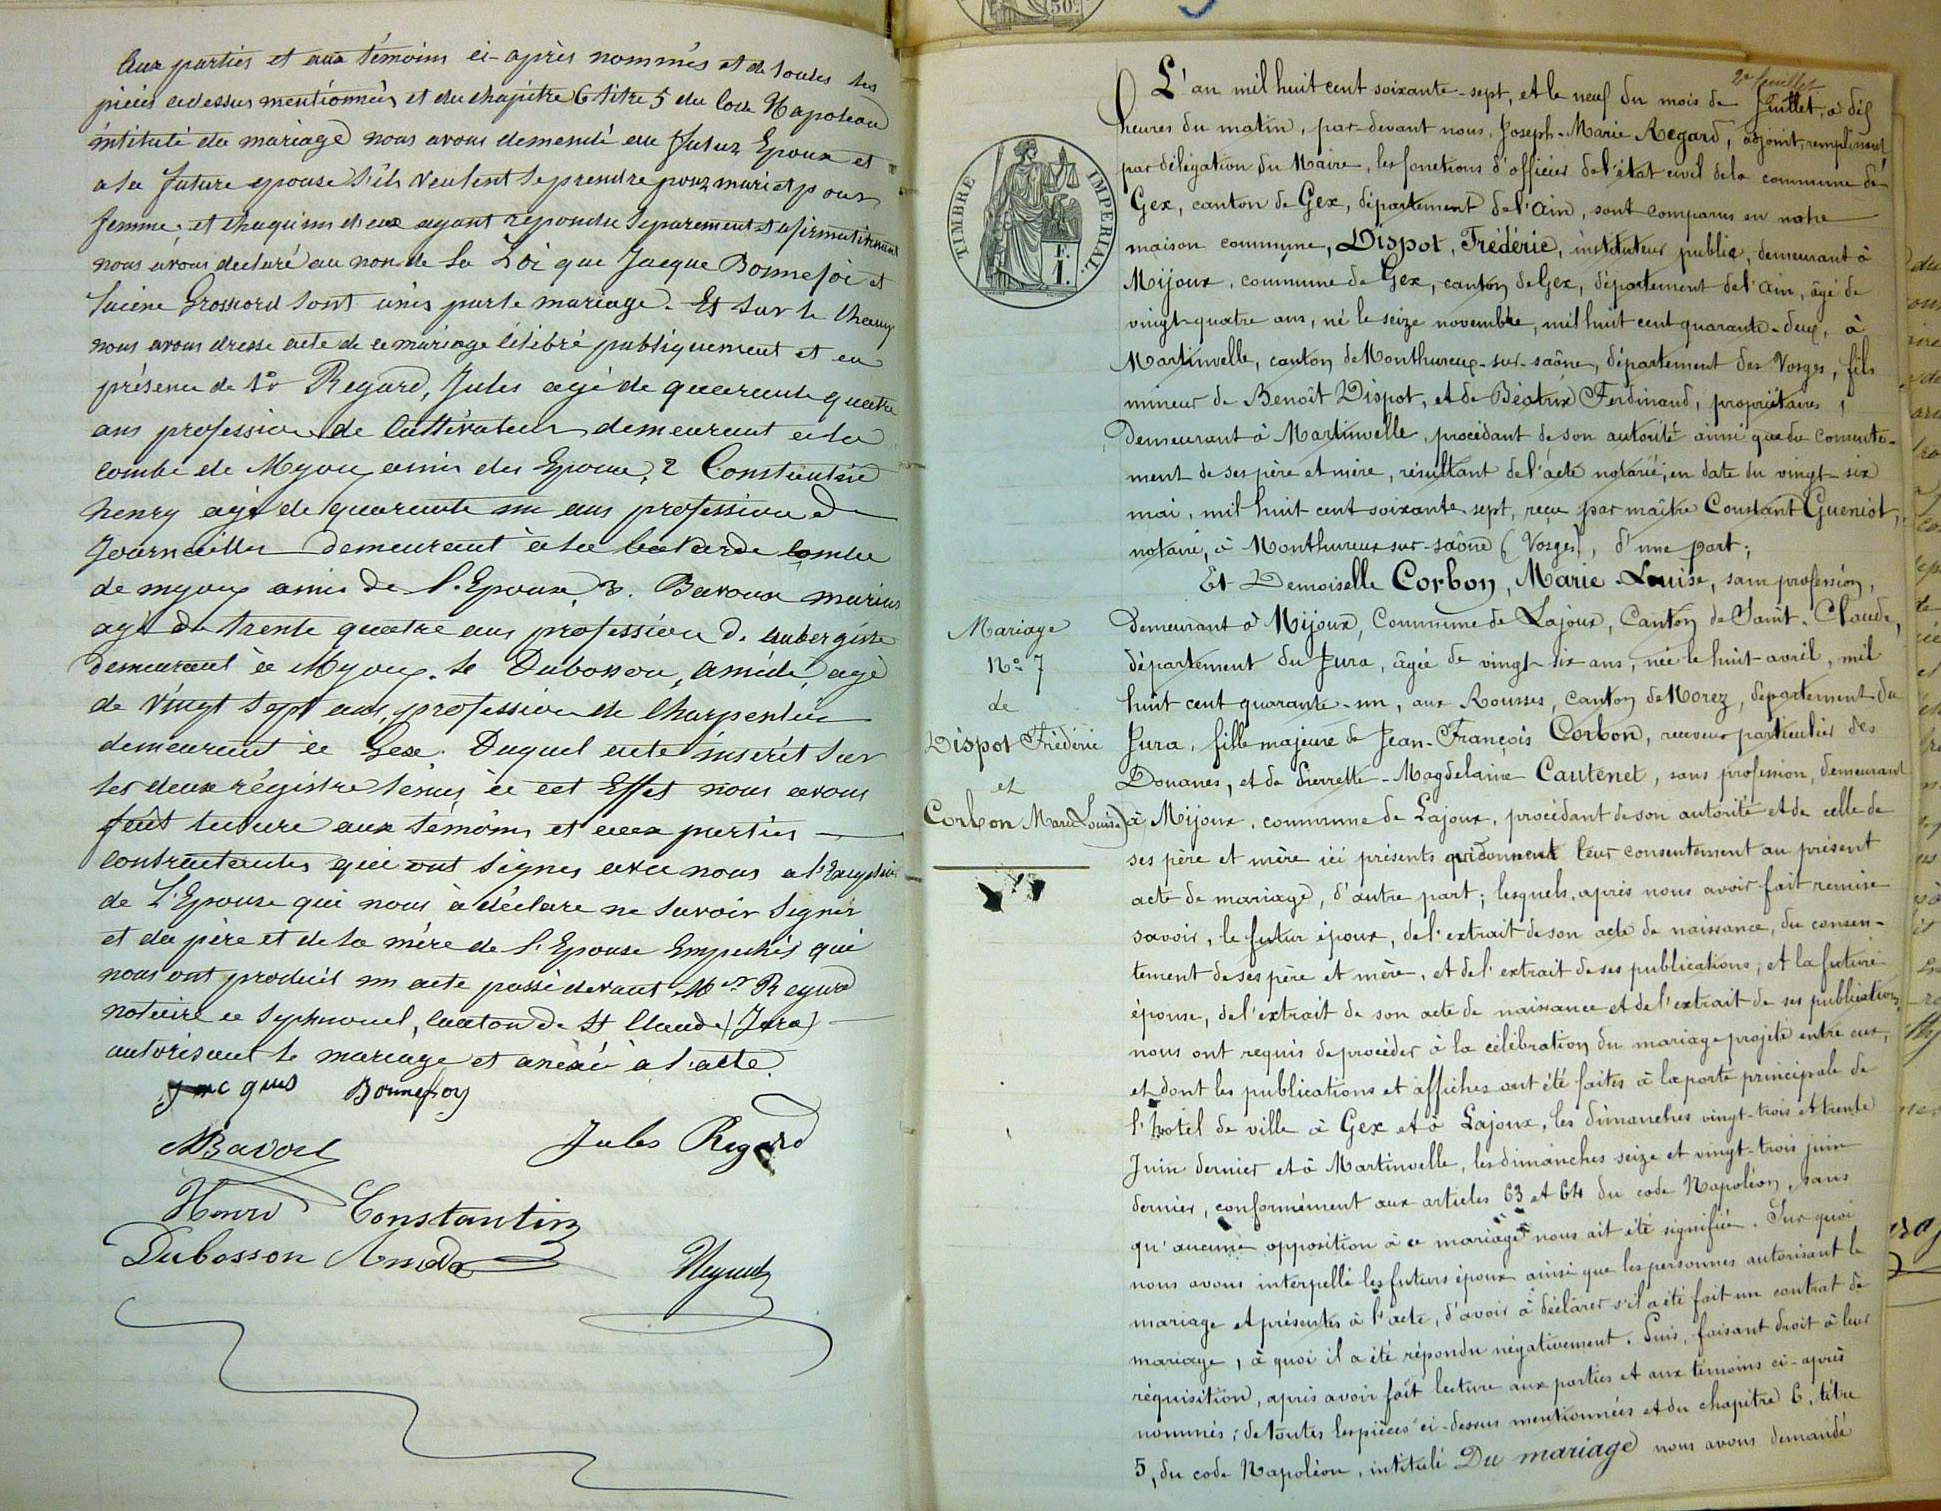 Aux parties et aux témoins ci-après nommés et de toutes les
pièces cidessus mentionnées et du chapitre 6 titre 5 du Code Napoléon
intitulé du mariage nous avons demendé au futur Epoux et
a la future epouse s'ils veulent se prendre pour mari et pour
femme, et chaquun d'eux ayant repondu separement et afirmativement
nous avons declaré au non de la Loi que Jacque Bonnefoi et
Grosrord sont unis par le mariage. Et sur le Champ
nous avons dresse acte de ce mariage célébré publiquement et en
présence de 1° Regard, Jules agé de quarante quatre
ans profession de Cultivateur demeurant a la
combe de Myoux amis des Epoux, 2 Constantin
henry agé de quarante un ans profession de
Journaillier demeurant à la combe
de myoux amis de l'Epoux, 3. Bavoux marius
agé de trente quatre ans profession d. aubergiste
demeurant à Myoux. Dubosson, Amédé, agé
de Vingt Sept ans, profession de Charpentier
demeurant à Gex. Duquel acte inserét sur
les deux régistre tenus à cet Effet nous avons
fait lecture aux témoins et aux parties
contractantes qui ont signés avec nous a l'exception
de L'Epouse qui nous à déclare ne Savoir Signer
et du père et de la mère de l'Epouse Empechés qui
nous ont produit un acte passé devant Mtr Regard
notaire a Septmoncel, canton de St Claude (Jura)
autorisant le mariage et anexé à l'acte.
Jacques Bonnefoy
MBavoux
Jules Regard
Henri Constantin
Dubosson Amédé
Regard
2e feuillet
TIMBRE IMPERIAL.
L'an mil huit cent soixante-sept, et le neuf du mois de Juillet, à dix
heures du matin, par-devant nous, Joseph-Marie Regard, adjoint, remplissant
par délégation du Maire, les fonctions d'officier de l'état civil de la commune de
Gex, canton de Gex, département de l'Ain, sont comparus en notre
maison commune, Dispot, Frédéric, instituteur public, demeurant à
Mijoux, commune de Gex, canton de Gex, département de l'Ain, âgé de
vingt-quatre ans, né le seize novembre, mil huit cent quarante-deux, à
Martinvelle, canton de Monthureux-sur-saône, département des Vosges, fils
mineur de Benoît Dispot, et de Béatrix Ferdinand, propriétaires,
Demeurant à Martinvelle, procédant de son autorité ainsi que du consente-
ment de ses père et mère, résultant de l'acte notarié, en date du vingt-six
mai, mil huit cent soixante-sept, reçu par maître Constant Gueniot,
notaire, à Monthureux-sur-saône (Vosges), d'une part;
Et Demoiselle Corbon, Marie-Louise, sans profession,
Demeurant à Mijoux, Commune de Lajoux, Canton de Saint-Claude,
département du Jura, âgée de vingt-six ans, née le huit avril, mil
huit cent quarante-un, aux Rousses, canton de Morez, département du
Jura, fille majeure de Jean-François Corbon, receveur particulier des
Douanes, et de Pierrette-Magdelaine Cautenet, sans profession, demeurant
à Mijoux, commune de Lajoux, procédant de son autorité et de celle de
ses père et mère ici présents qui donnent leur consentement au présent
acte de mariage, d'autre part; lesquels, après nous avoir fait remise
savoir, le futur époux, de l'extrait de son acte de naissance, du consen-
tement de ses père et mère, et de l'extrait de ses publications; et la future
épouse, de l'extrait de son acte de naissance et de l'extrait de ses publications,
nous ont requis de procéder à la célébration du mariage projeté entre eux,
et dont les publications et affiches ont été faites à la porte principale de
l'hotel de ville à Gex et à Lajoux, les dimanches vingt-trois et trente
Juin dernier et à Martinvelle, les dimanches seize et vingt-trois juin
dernier, conformément aux articles 63 et 64 du code Napoléon, sans
qu'aucune opposition à ce mariage nous ait été signifiée. Sur quoi
nous avons interpellé les futurs époux ainsi que les personnes autorisant le
mariage et présentes à l'acte, d'avoir à déclarer s'il a été fait un contrat de
mariage, à quoi il a été répondu négativement. Puis, faisant droit à leur
réquisition, après avoir fait lecture aux parties et aux témoins ci-après
nommés; de toutes les pièces ci-dessus mentionnées et du chapitre 6, titre
5, du code Napoléon, intitulé Du mariage nous avons demandé
Mariage
No 7
de
Dispot Frédéric
et
Corbon Marie Louise